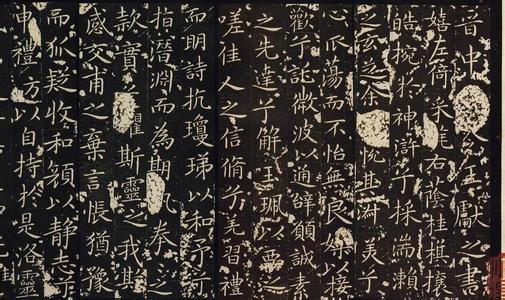 晉中令王獻之書
嬉左倚采旄右蔭桂旗攘
皓捥於神滸兮採湍瀨
之玄芝余悅其淑美兮
心振蕩而不怡無良媒以接
歡兮託微波以通辭願誠素
之先達兮解玉珮以要之
嗟佳人之信脩兮羌習禮
而明詩抗瓊珶以和予兮
指潛淵而為期執拳之
款實兮懼斯靈之我欺
感交甫之棄言悵猶豫
而狐疑收和顏以靜志兮
申禮防以自持於是洛靈